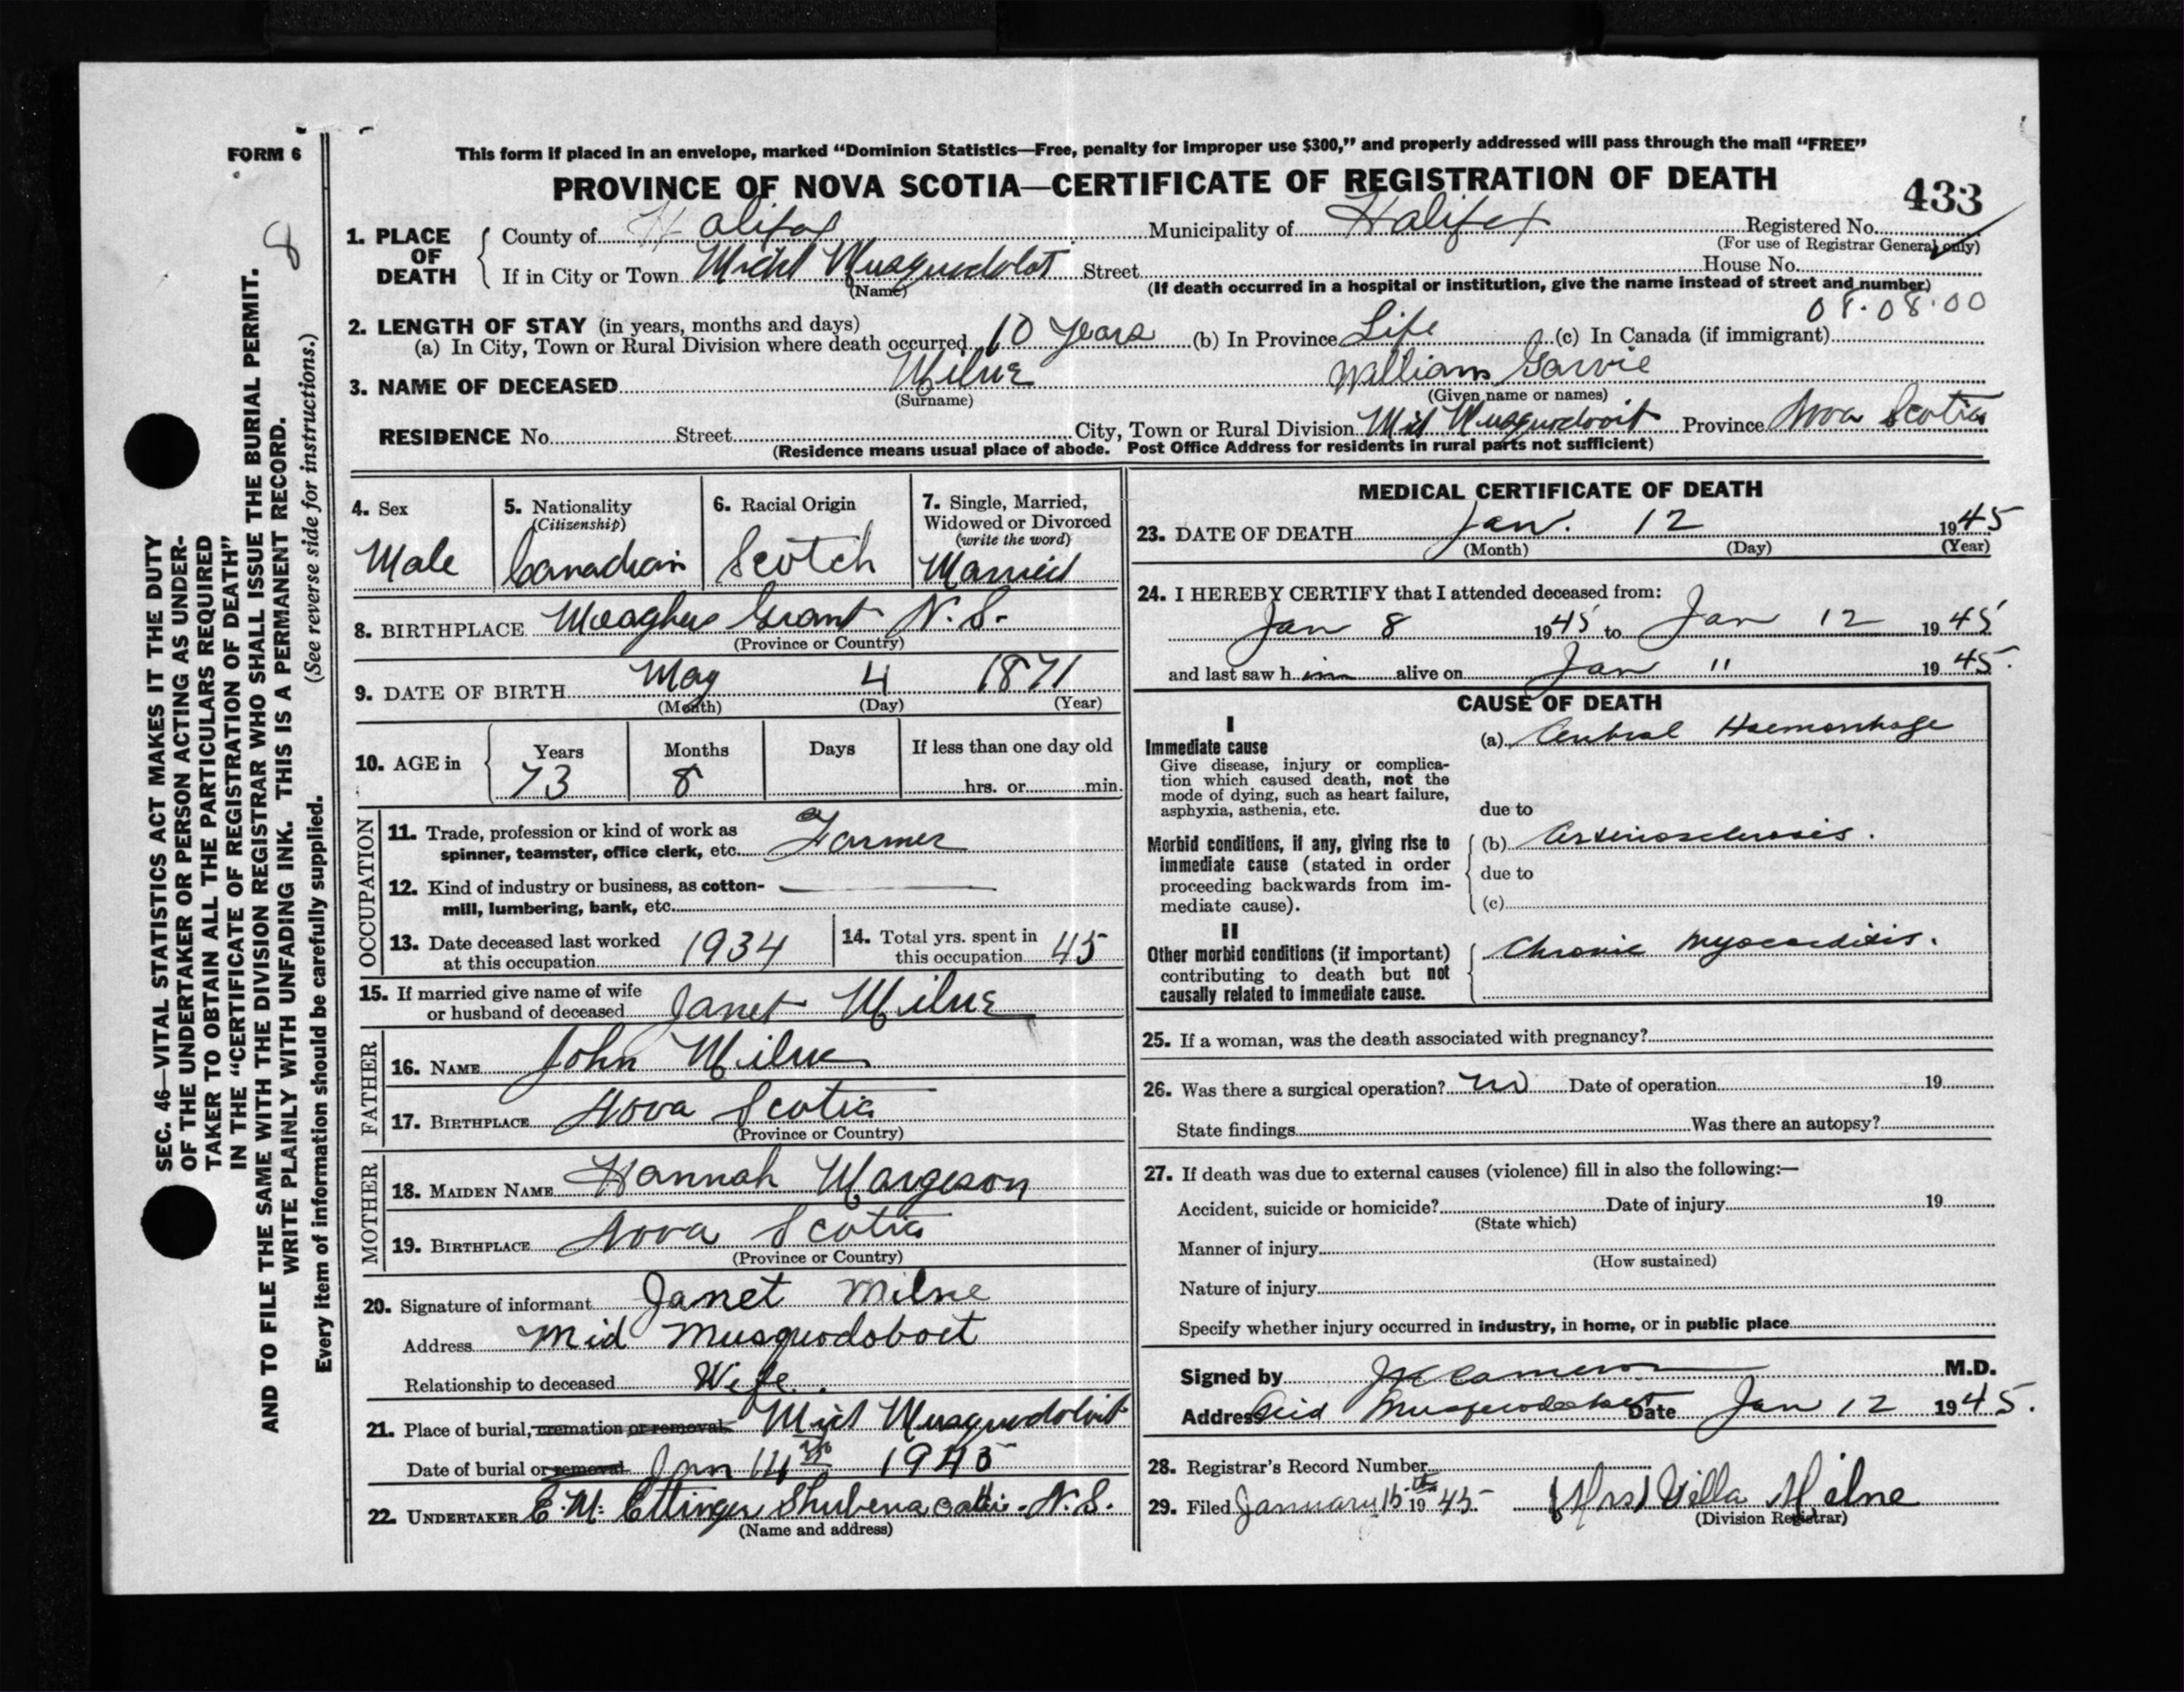 FORM 6
8
SEC. 46—VITAL STATISTICS ACT MAKES IT THE DUTY
OF THE UNDERTAKER OR PERSON ACTING AS UNDER-
TAKER TO OBTAIN ALL THE PARTICULARS REQUIRED
IN THE "CERTIFICATE OF REGISTRATION OF DEATH"
AND TO FILE THE SAME WITH THE DIVISION REGISTRAR WHO SHALL ISSUE THE BURIAL PERMIT.
WRITE PLAINLY WITH UNFADING INK. THIS IS A PERMANENT RECORD.
Every item of information should be carefully supplied. (See reverse side for instructions.)
This form if placed in an envelope, marked "Dominion Statistics—Free, penalty for improper use $300," and properly addressed will pass through the mail "FREE"
PROVINCE OF NOVA SCOTIA—CERTIFICATE OF REGISTRATION OF DEATH
433
1. PLACE OF DEATH County of Halifax Municipality of Halifax Registered No.
(For use of Registrar General only)
If in City or Town Musquodoboit Street House No.
(Name) (If death occurred in a hospital or institution, give the name instead of street and number)
08.08.00
2. LENGTH OF STAY (in years, months and days)
(a) In City, Town or Rural Division where death occurred 10 years (b) In Province Life (c) In Canada (if immigrant)
3. NAME OF DECEASED Milne William Garvie
(Surname) (Given name or names)
RESIDENCE No. Street City, Town or Rural Division Mid Musquodoboit Province Nova Scotia
(Residence means usual place of abode. Post Office Address for residents in rural parts not sufficient)
4. Sex Male
5. Nationality (Citizenship) Canadian
6. Racial Origin Scotch
7. Single, Married, Widowed or Divorced (write the word) Married
8. BIRTHPLACE Meaghers Grant N.S.
(Province or Country)
9. DATE OF BIRTH May 4 1871
(Month) (Day) (Year)
10. AGE in Years Months Days If less than one day old
73 8 hrs. or min.
OCCUPATION
11. Trade, profession or kind of work as
spinner, teamster, office clerk, etc. Farmer
12. Kind of industry or business, as cotton-
mill, lumbering, bank, etc.
13. Date deceased last worked
at this occupation 1934
14. Total yrs. spent in
this occupation 45
15. If married give name of wife
or husband of deceased Janet Milne
FATHER
16. NAME John Milne
17. BIRTHPLACE Nova Scotia
(Province or Country)
MOTHER
18. MAIDEN NAME Hannah Margeson
19. BIRTHPLACE Nova Scotia
(Province or Country)
20. Signature of informant Janet Milne
Address Mid Musquodoboit
Relationship to deceased Wife.
21. Place of burial, cremation or removal Mid Musquodoboit
Date of burial or removal Jan 14th 1945
22. UNDERTAKER E.M. Ettinger Shubenacadie N.S.
(Name and address)
MEDICAL CERTIFICATE OF DEATH
23. DATE OF DEATH Jan. 12 1945
(Month) (Day) (Year)
24. I HEREBY CERTIFY that I attended deceased from:
Jan 8 1945 to Jan 12 1945
and last saw him alive on Jan 11 1945.
CAUSE OF DEATH
I
Immediate cause
Give disease, injury or complica-
tion which caused death, not the
mode of dying, such as heart failure,
asphyxia, asthenia, etc.
(a) Cerebral Haemorrhage
due to
Morbid conditions, if any, giving rise to
immediate cause (stated in order
proceeding backwards from im-
mediate cause).
(b) Arteriosclerosis.
due to
(c)
II
Other morbid conditions (if important)
contributing to death but not
causally related to immediate cause.
Chronic Myocarditis.
25. If a woman, was the death associated with pregnancy?
26. Was there a surgical operation? no Date of operation 19
State findings Was there an autopsy?
27. If death was due to external causes (violence) fill in also the following:—
Accident, suicide or homicide? Date of injury 19
(State which)
Manner of injury
(How sustained)
Nature of injury
Specify whether injury occurred in industry, in home, or in public place
Signed by Cameron M.D.
Address Mid Musquodoboit Date Jan 12 1945.
28. Registrar's Record Number
29. Filed January 15th 1945 (Mrs) Villa Milne
(Division Registrar)